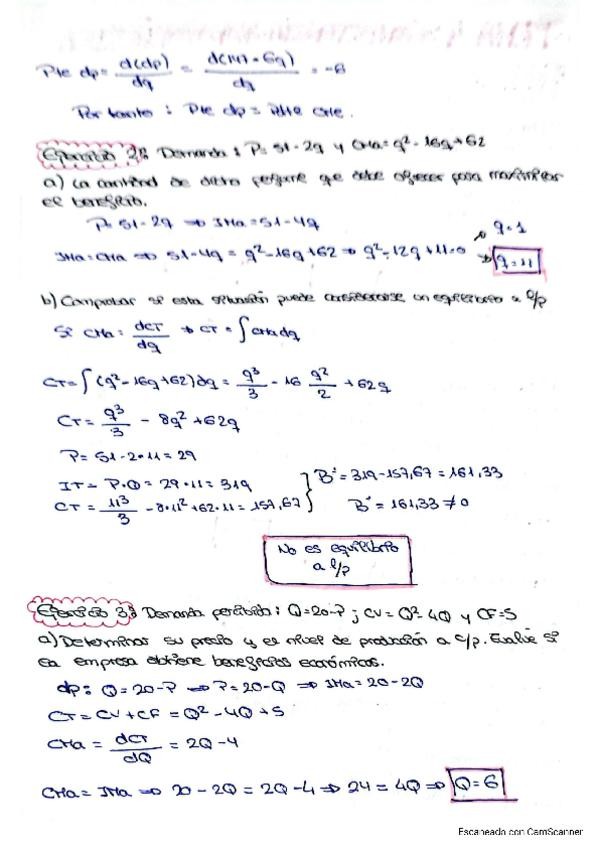 Pte dp = d(dp)/dq = d(147 - 6q)/dq = -6
Por tanto : Pte dp = Pte CMe.
Ejercicio 2: Demanda : P = 51 - 2q y CMa = q² - 16q + 62
a) La cantidad de dicho perfume que debe ofrecer para maximizar
el beneficio.
P = 51 - 2q ⇒ IMa = 51 - 4q
IMa = CMa ⇒ 51 - 4q = q² - 16q + 62 ⇒ q² - 12q + 11 = 0
q = 1
q = 11
b) Comprobar si esta situación puede considerarse un equilibrio a l/p
Si CMa = dCT/dq → CT = ∫ CMa dq
CT = ∫ (q² - 16q + 62) dq = q³/3 - 16 q²/2 + 62q
CT = q³/3 - 8q² + 62q
P = 51 - 2·11 = 29
IT = P·Q = 29·11 = 319
CT = 11³/3 - 8·11² + 62·11 = 157,67
Bº = 319 - 157,67 = 161,33
Bº = 161,33 ≠ 0
No es equilibrio
a l/p
Ejercicio 3: Demanda percibida : Q = 20 - P ; CV = Q² - 4Q y CF = 5
a) Determinar su precio y el nivel de producción a c/p. Evalúe si
la empresa obtiene beneficios económicos.
dp : Q = 20 - P ⇒ P = 20 - Q ⇒ IMa = 20 - 2Q
CT = CV + CF = Q² - 4Q + 5
CMa = dCT/dQ = 2Q - 4
CMa = IMa ⇒ 20 - 2Q = 2Q - 4 ⇒ 24 = 4Q ⇒ Q = 6
Escaneado con CamScanner